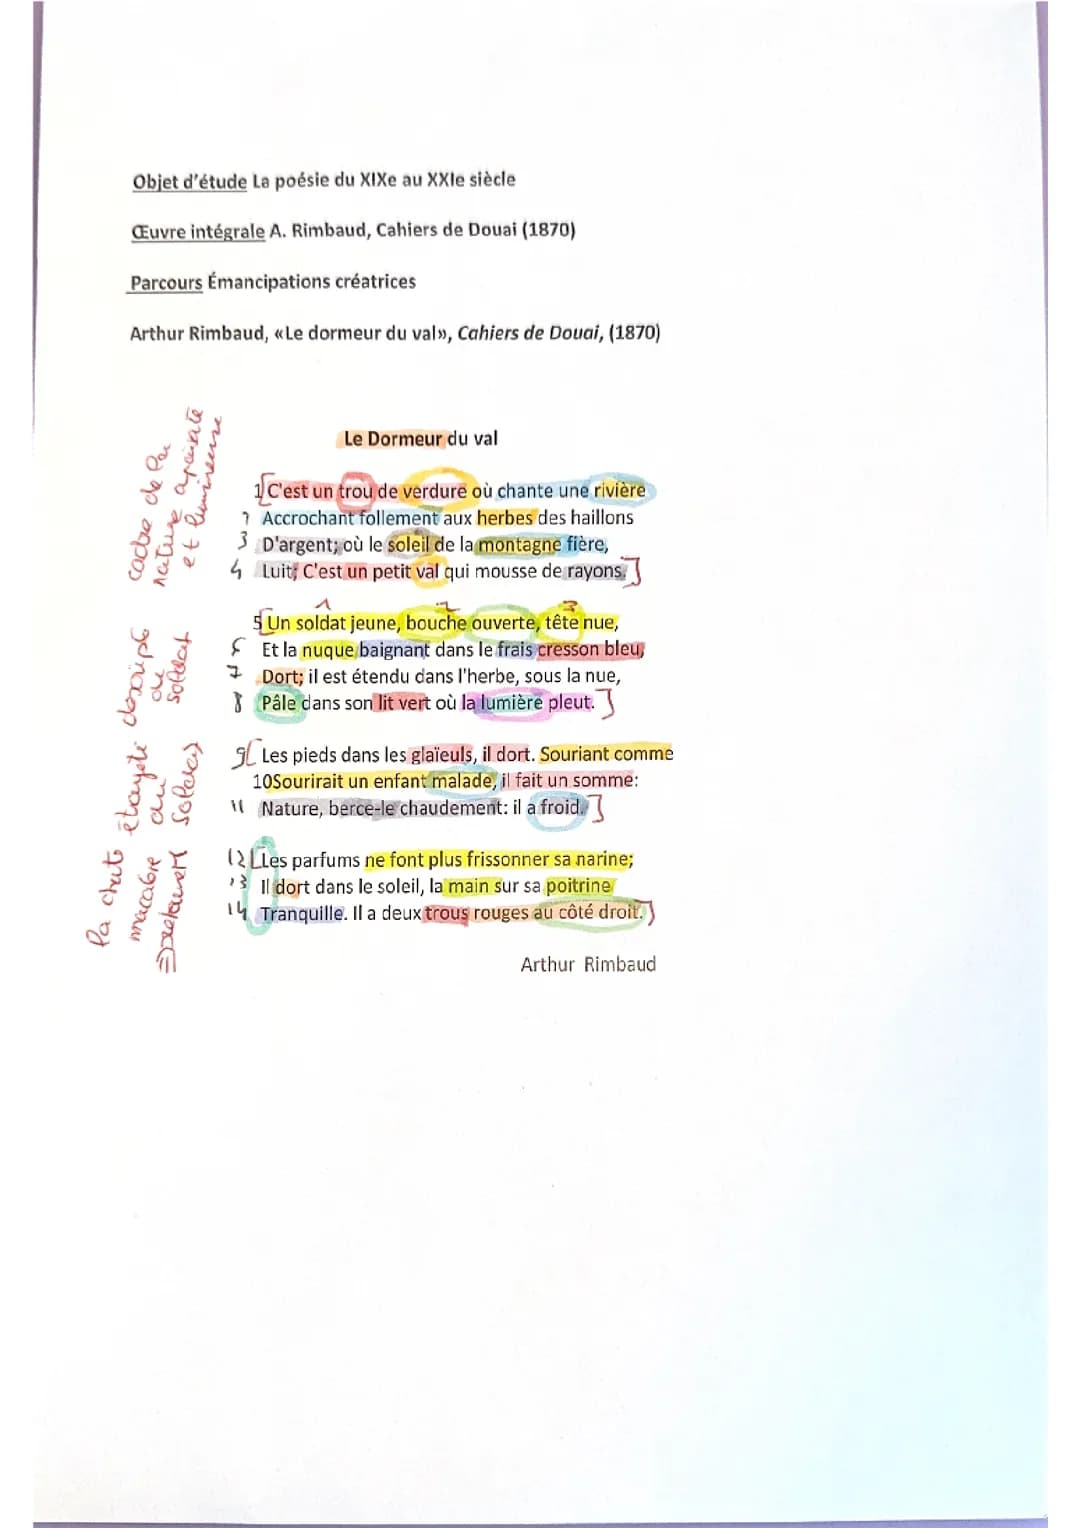 Objet d'étude La poésie du XIXe au XXIe siècle
Œuvre intégrale A. Rimbaud, Cahiers de Douai (1870)
Parcours Émancipations créatrices
Arthur Rimbaud, «Le dormeur du val», Cahiers de Douai, (1870)
Le Dormeur du val
1 C'est un trou de verdure où chante une rivière
Accrochant follement aux herbes des haillons
3 D'argent; où le soleil de la montagne fière,
4 Luit; C'est un petit val qui mousse de rayons.
1 2 3
5 Un soldat jeune, bouche ouverte, tête nue,
Et la nuque baignant dans le frais cresson bleu,
7 Dort; il est étendu dans l'herbe, sous la nue,
8 Pâle dans son lit vert où la lumière pleut.
9 Les pieds dans les glaïeuls, il dort. Souriant comme
10Sourirait un enfant malade, il fait un somme:
11 Nature, berce-le chaudement: il a froid.
12 Les parfums ne font plus frissonner sa narine;
13 Il dort dans le soleil, la main sur sa poitrine
14 Tranquille. Il a deux trous rouges au côté droit.
Arthur Rimbaud
cadre de la
nature apaisante
et lumineuse
de
soldat
du
soldat
la chute
macabre